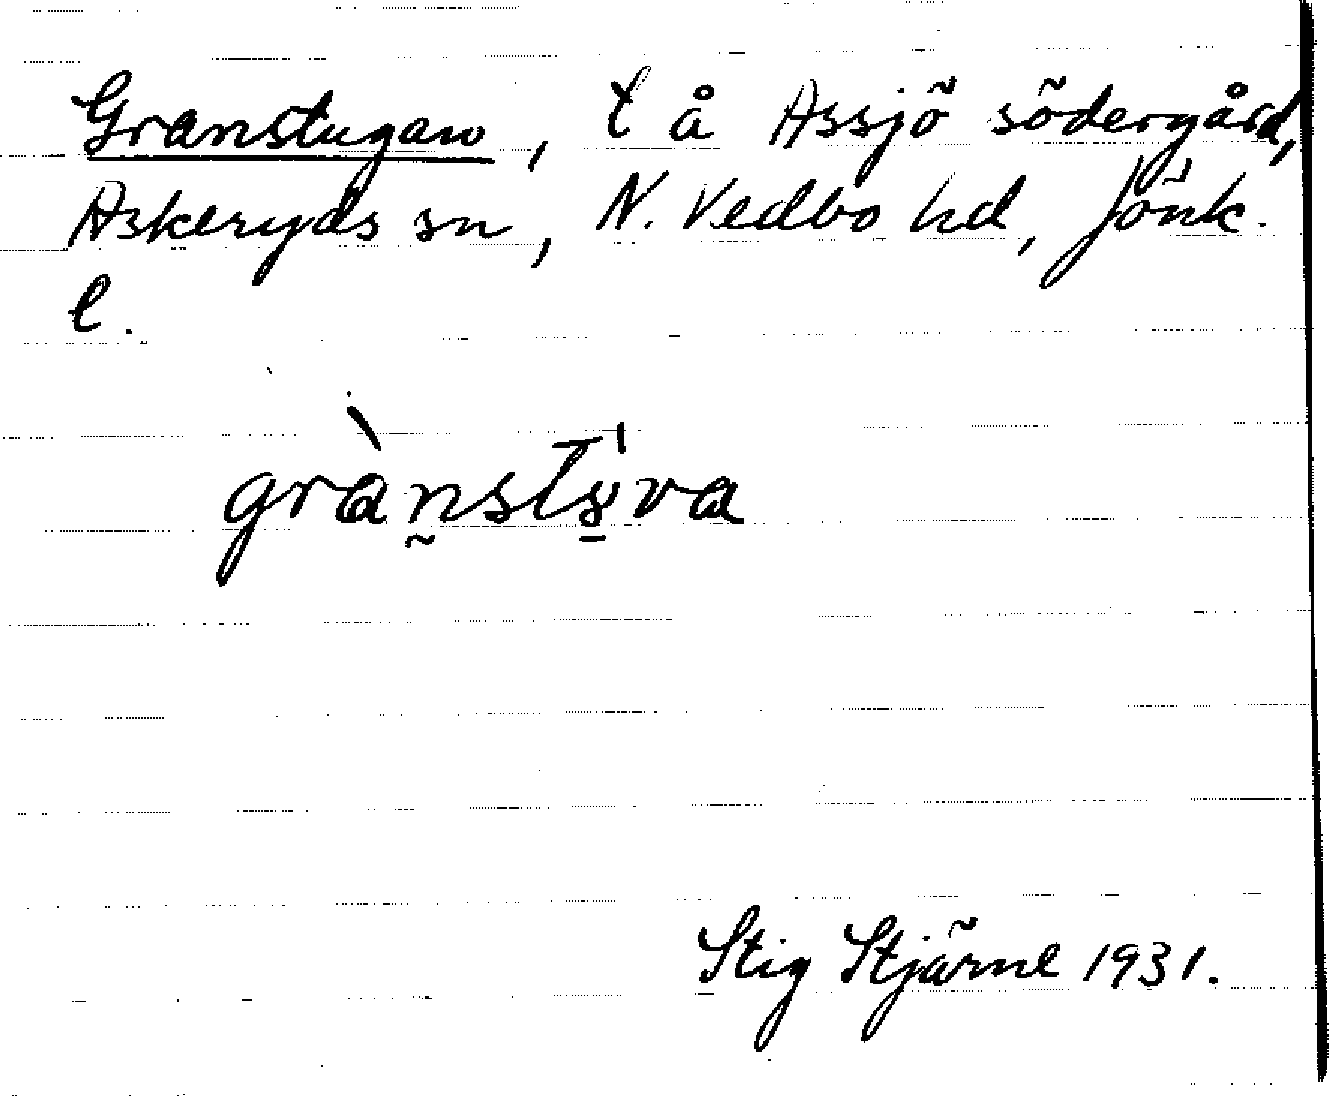 Granstugan, t å Assjö södergård,
Askeryds sn, N. Vedbo hd, Jönk.
l.
Stig Stjärne 1931.